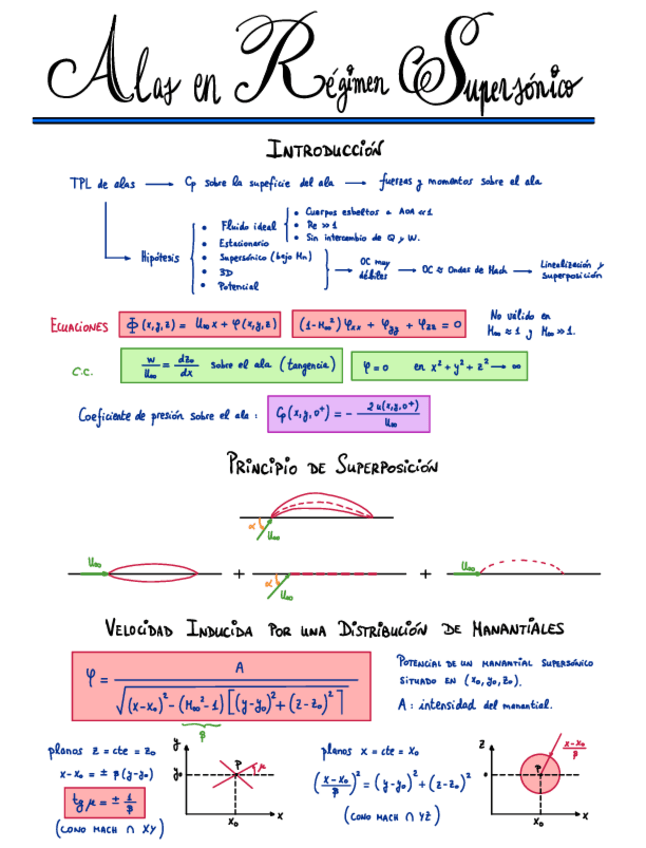 Alas en Régimen Supersónico
INTRODUCCIÓN
TPL de alas → Cp sobre la supeficie del ala → fuerzas y momentos sobre el ala
Hipótesis
• Fluido ideal
• Cuerpos esbeltos a AOA ≪1
• Re ≫ 1
• Sin intercambio de Q y W.
• Estacionario
• Supersónico (bajo Mn)
• 3D
• Potencial
→ OC muy débiles → OC ≈ Ondas de Mach → Linealización y superposición
ECUACIONES
Φ(x,y,z) = U∞ x + φ(x,y,z)
(1-M∞²) φxx + φyy + φzz = 0
No válido en
M∞ ≈ 1 y M∞ ≫ 1.
C.C.
w/U∞ = dz₀/dx sobre el ala (tangencia)
φ = 0 en x² + y² + z² → ∞
Coeficiente de presión sobre el ala :
Cp(x,y,0⁺) = - 2u(x,y,0⁺)/U∞
PRINCIPIO DE SUPERPOSICIÓN
α
U∞
U∞
+
α
U∞
+
U∞
VELOCIDAD INDUCIDA POR UNA DISTRIBUCIÓN DE MANANTIALES
φ = A / √((x-x₀)² - (M∞²-1)[(y-y₀)² + (z-z₀)²])
β
POTENCIAL DE UN MANANTIAL SUPERSÓNICO
SITUADO EN (x₀,y₀,z₀).
A : intensidad del manantial.
planos z = cte = z₀
x-x₀ = ± β(y-y₀)
tg μ = ± 1/β
(CONO MACH ∩ XY)
y
y₀
P
μ
x₀
x
planos x = cte = x₀
((x-x₀)/β)² = (y-y₀)² + (z-z₀)²
(CONO MACH ∩ YZ)
z
P
(x-x₀)/β
x₀
x